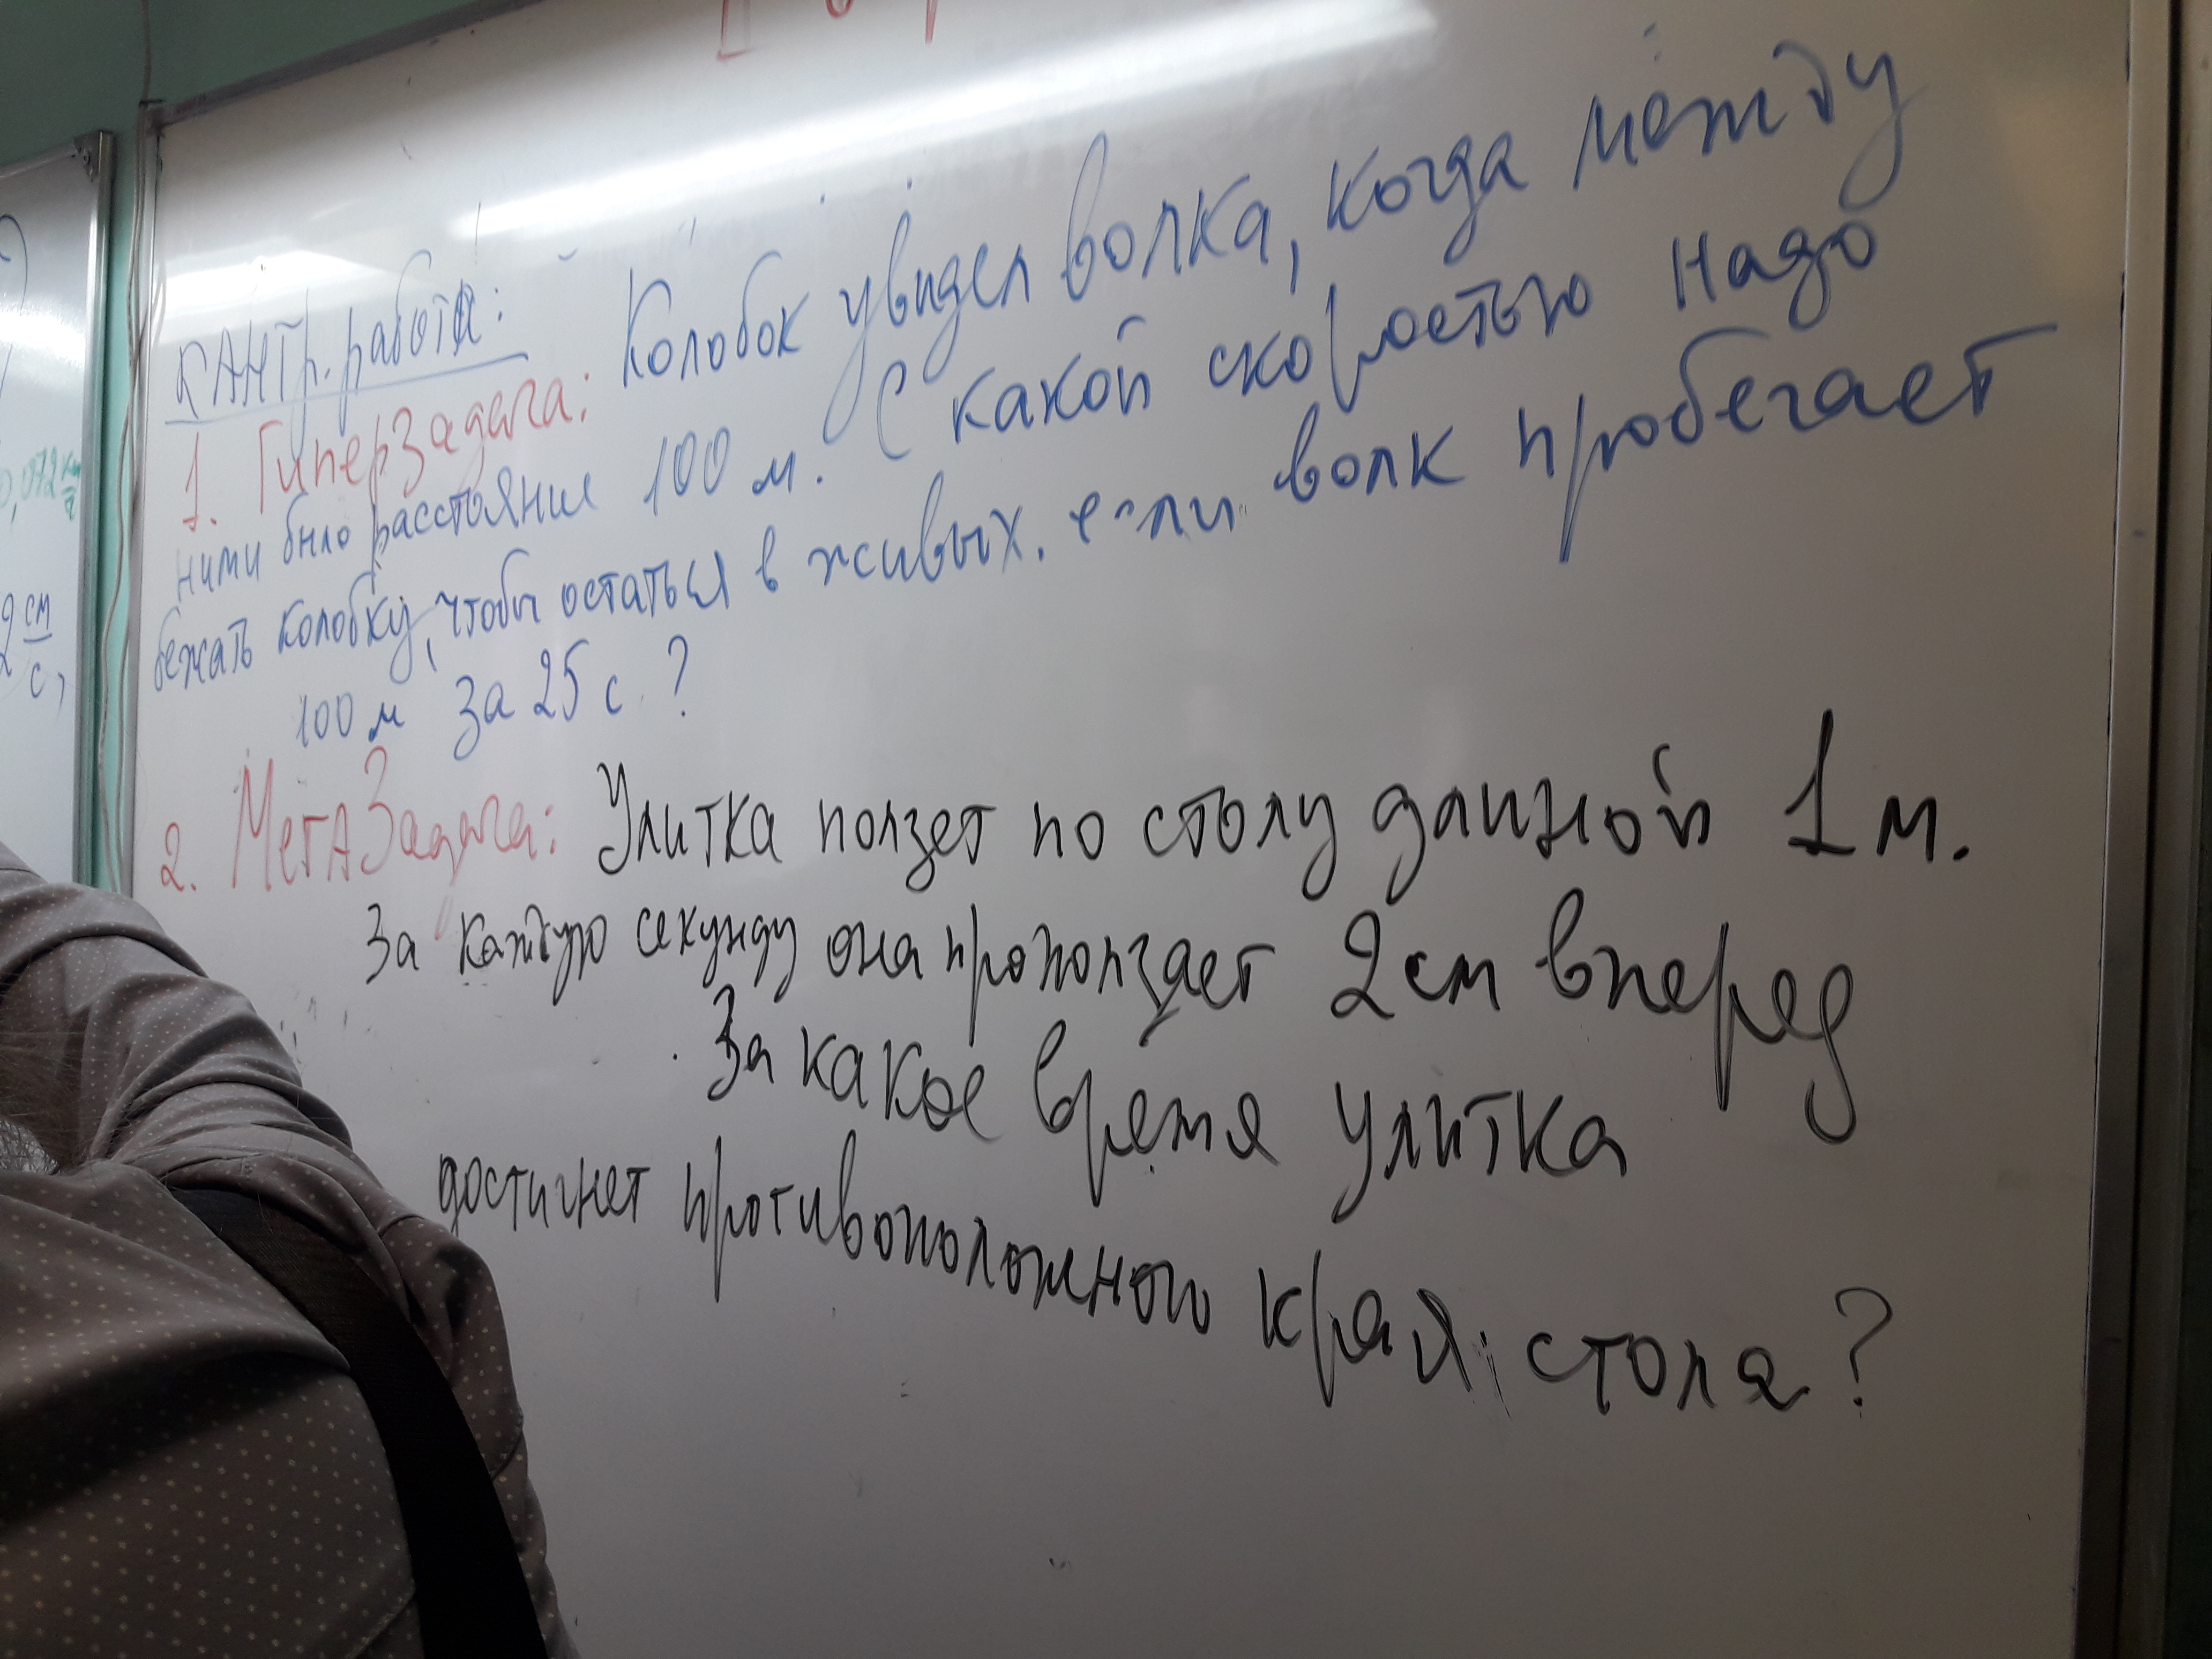 КАНТр. работа:
1. ГиперЗадача: Колобок увидел волка, когда между
ними было расстояние 100 м. С какой скоростью надо
бежать колобку, чтобы остаться в живых. если волк пробегает
100 м за 25 с ?
2. МегАЗадача: Улитка ползет по столу длиной 1 м.
За каждую секунду она проползает 2 см вперед
За какое время улитка
достигнет противоположного края стола?
0,072 км/ч
2 см/с,